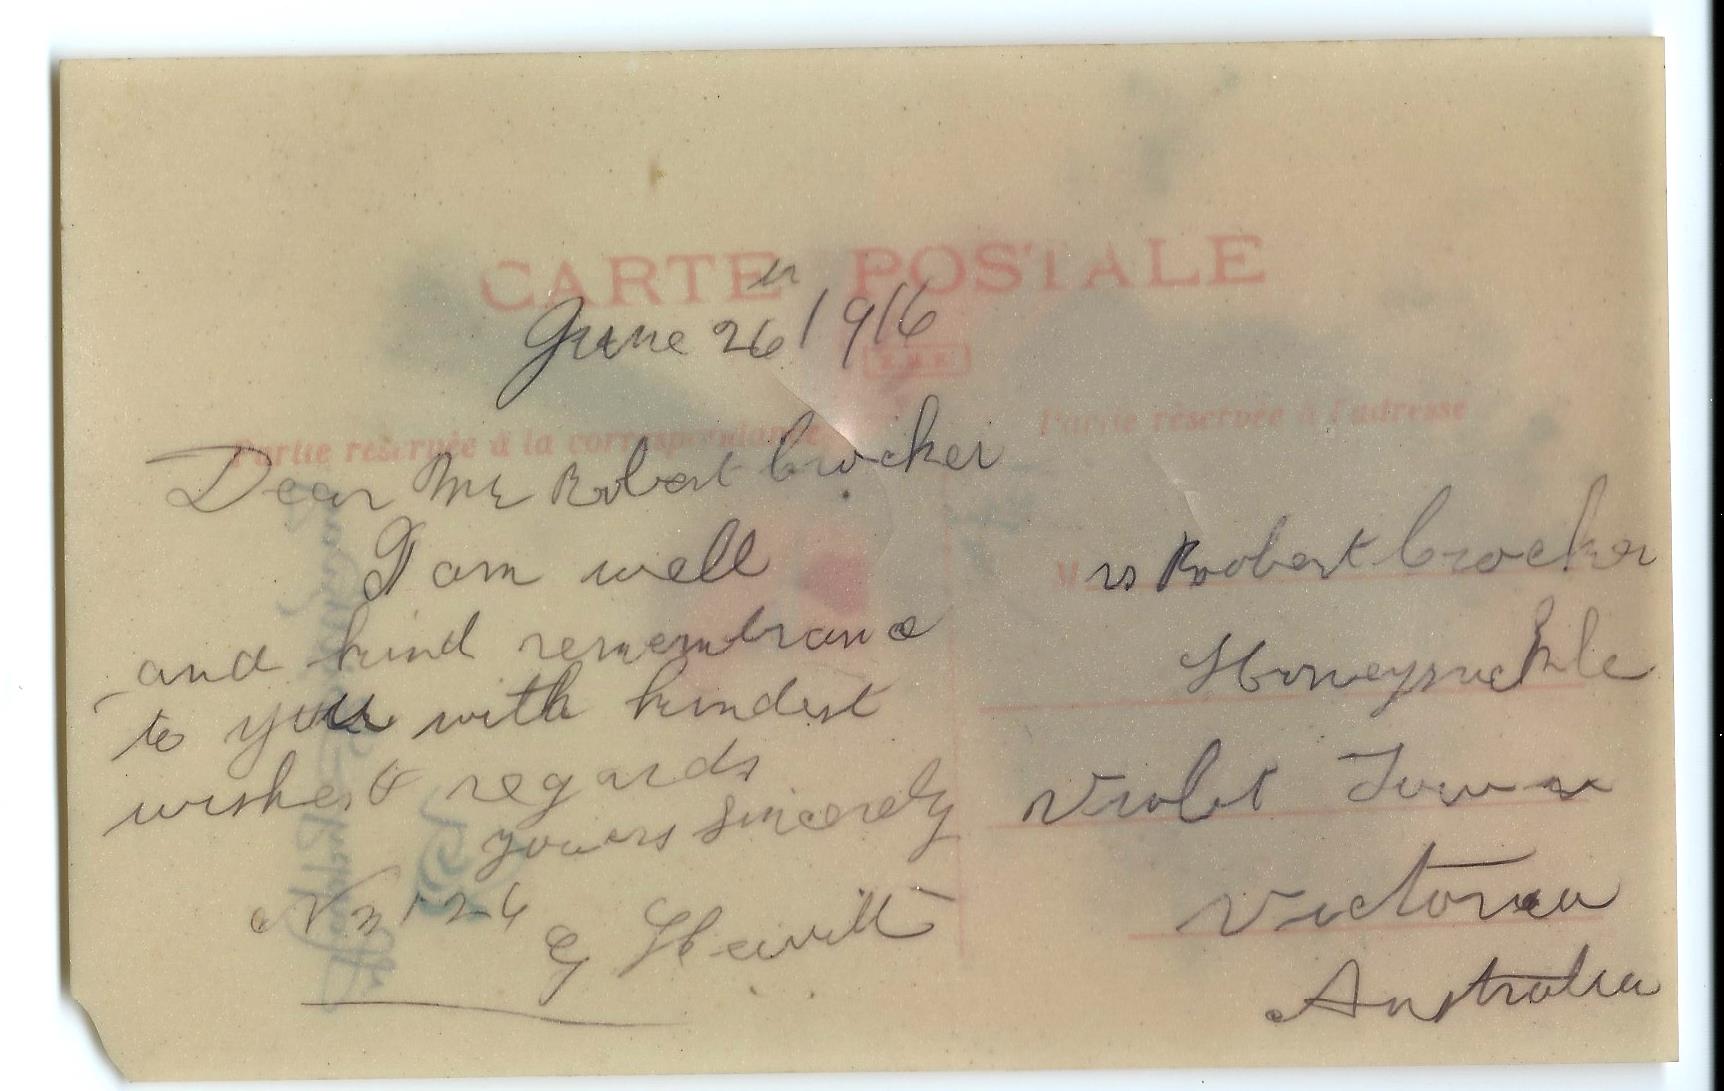 CARTE POSTALE
June 26th 1916
Partie réservée à la correspondance
Partie réservée à l'adresse
Dear Mr Robert Crocker
I am well
and kind remembrance
to you with kindest
wishes & regards
yours sincerely
N 3126
G Hewitt
Mrs Robert Crocker
Honeysuckle
Violet Town
Victoria
Australia